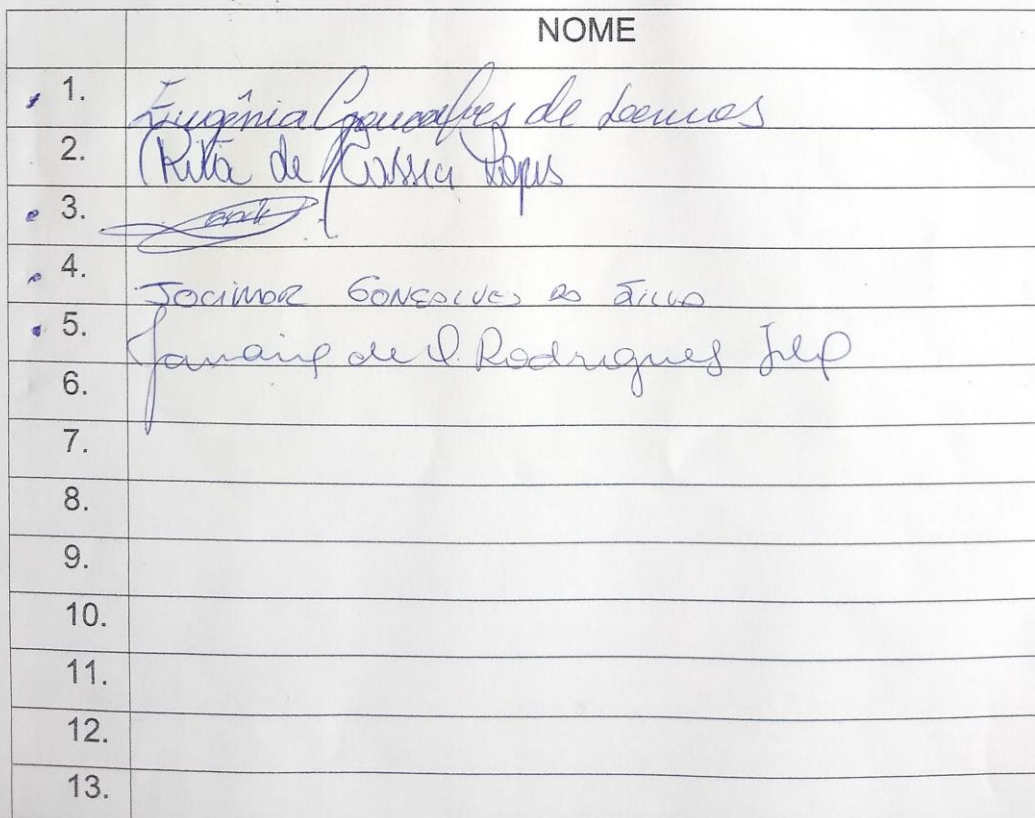 NOME
1. Eugênia Gonçalves de Lemos
2. Rita de Cássia Lopes
3.
4. JOCIMAR GONÇALVES DA SILVA
5. de Rodrigues
6.
7.
8.
9.
10.
11.
12.
13.